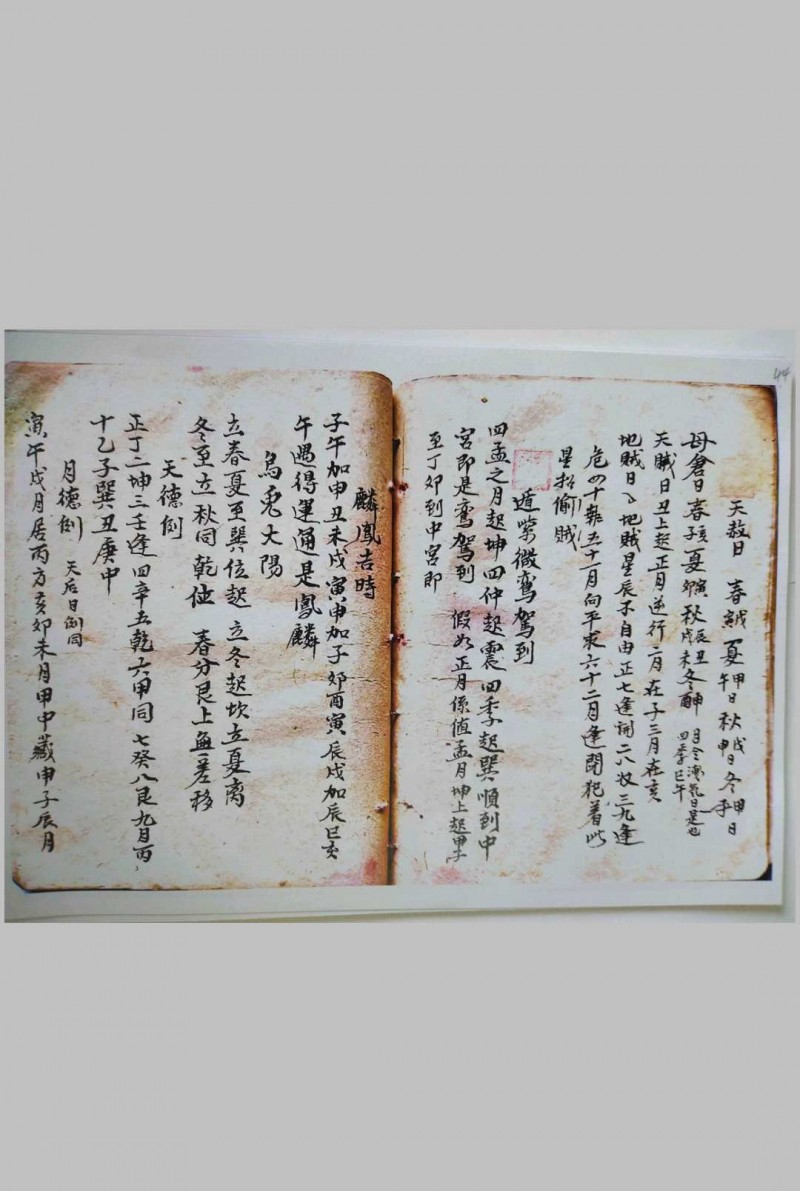 44
天赦日 春戊 夏甲午日 秋戊申日 冬甲子日
母倉日春亥子夏寅卯秋辰戌丑未冬申酉 月令
四季巳午
天賊日丑上起正月逆行二月在子三月在亥
地賊日丶地賊星辰不自由正七逢開二八收三九逢
危四十執五十一月向平求六十二月逢閉犯着此
星招偷賊
遁紫微鸞駕到
四孟之月起坤四仲起震四季起巽順到中
宮即是鸞駕到 假如正月係值孟月坤上起甲子
至丁卯到中宮即
麟鳳吉時
子午加申丑未戌寅申加子卯酉寅辰戌加辰巳亥
午遇得運通是鳳麟
烏兎太陽
立春夏至巽位起立冬起坎立夏离
冬至立秋同乾位 春分艮上無差移
天德例
正丁二坤三壬逢四辛五乾六甲同七癸八艮九月丙
十乙子巽丑庚中
月德例 天后日例同
寅午戌月居丙方亥卯未月甲中藏申子辰月